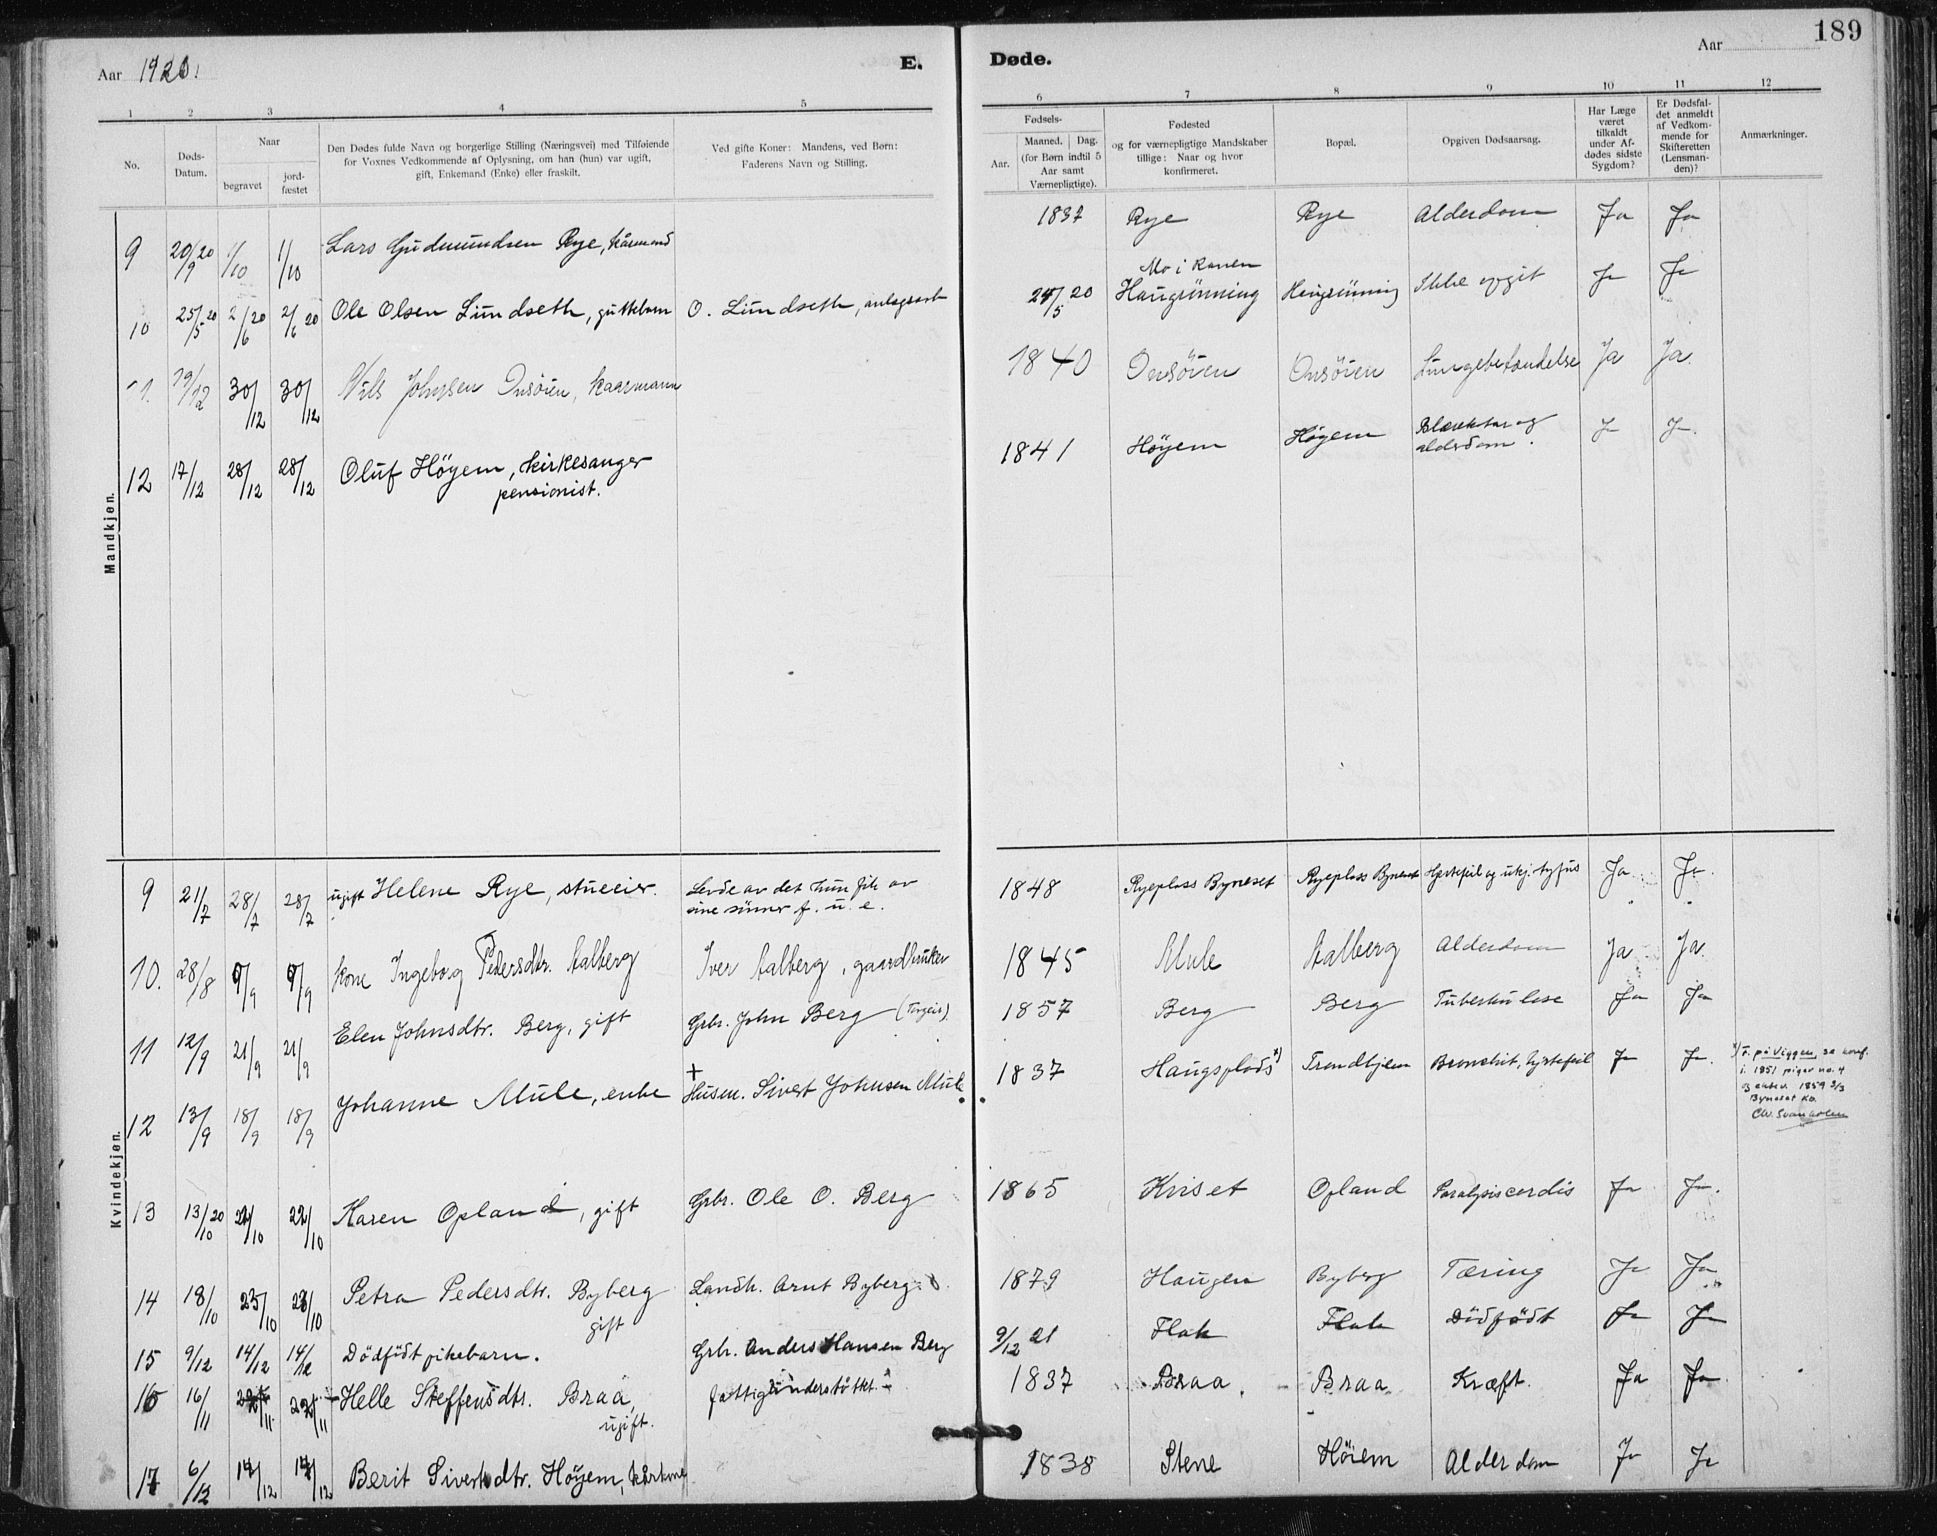 189
Aar 1920.
E. Døde.
Aar
1 2 3 4 5 6 7 8 9 10 11 12
No.
Døds-Datum.
Naar
begravet
jord-fæstet
Den Dødes fulde Navn og borgerlige Stilling (Næringsvei) med Tilføiende
for Voxnes Vedkommende af Oplysning, om han (hun) var ugift,
gift, Enkemand (Enke) eller fraskilt.
Ved gifte Koner: Mandens, ved Børn:
Faderens Navn og Stilling.
Fødsels-
Aar.
Maaned. Dag.
(for Børn indtil 5
Aar samt
Værnepligtige).
Fødested
og for værnepligtige Mandskaber
tillige: Naar og hvor
konfirmeret.
Bopæl.
Opgiven Dødsaarsag.
Har Læge
været
tilkaldt
under Af-
dødes sidste
Sygdom?
Er Dødsfal-
det anmeldt
af Vedkom-
mende for
Skifteretten
(Lensman-
den)?
Anmærkninger.
Mandkjøn.
9 20/9 20 1/10 1/10 Lars Gudmundsen Rye, kårmand 1837 Rye Rye Alderdom Ja Ja
10 25/5 20 2/6 20 2/6 20 Ole Olsen Lundseth, guttebarn O. Lundseth, anlægsarb 24/5 20 Mo i Ranen
Haugrünning Haugrünning Ikke opgit Ja Ja
11. 19/12 30/12 30/12 Nils Johnsen Onsöien, kaarmann 1840 Onsöien Onsöien Lungebetændelse Ja Ja.
12 17/12 28/12 28/12 Oluf Höyem, kirkesanger
pensionist. 1841 Höyem Höyem Blærekatar og
alderdom. Ja Ja.
Kvindekjøn.
9 21/7 28/7 28/7 ugift Helene Rye, stueeier. Levde av det hun fik av
sine sönner f. u. e. 1848 Ryeplass Byneset Ryeplass Byneset Hjertefeil og tyfus Ja Ja.
10. 28/8 9/9 9/9 kone Ingeborg Pedersdtr. Aalberg Iver Aalberg, gaardbruker 1845 Mule Aalberg Alderdom Ja Ja.
11 12/9 21/9 21/9 Elen Johnsdtr. Berg, gift Grbr. John Berg 1857 Berg Berg Tuberkulose Ja Ja
12 13/9 18/9 18/9 Johanne Mule, enke + Husm. Sivert Johnsen Mule 1837 Haugsplads x) Trondhjem Bronchit, hjertefeil Ja Ja.
x) F. på Viggen, se konf.
i 1851 piger no. 4
Byneset
13 13/10 20 22/10 22/10 Karen Opland, gift Grbr. Ole O. Berg 1865 Kviset Opland Paralysis cordis Ja Ja.
14 18/10 23/10 23/10 Petra Pedersdtr. Byberg
gift Landh. Arnt Byberg. 1879 Haugen Byberg Tæring Ja Ja
15 9/12 14/12 14/12 Dödfödt pikebarn. Grbr. Anders Hansen Berg 9/12 21 Flak Flak Dödfödt Ja Ja
16 16/11 22/11 22/11 Helle Steffensdtr. Braa,
ugift. fattigunderstöttet. 1837 Braa. Braa Kræft. Ja Ja
17 6/12 14/12 14/12 Berit Sivertsdtr. Höyem, kårkone 1838 Stene Höiem Alderdom Ja Ja